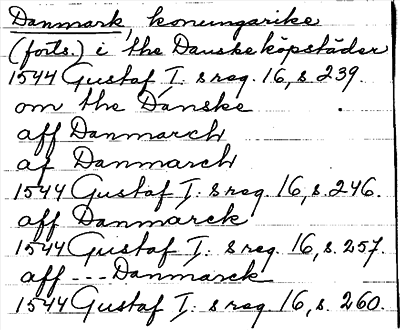 Danmark, konungarike
(forts.) i the Danske köpstäder
1544 Gustaf I: s reg. 16, s. 239.
om the Danske
aff Danmarch
af Danmarch
1544 Gustaf I: s reg. 16, s. 246.
aff Danmarck
1544 Gustaf I: s reg. 16, s. 257.
aff --- Danmarck
1544 Gustaf I: s reg. 16, s. 260.